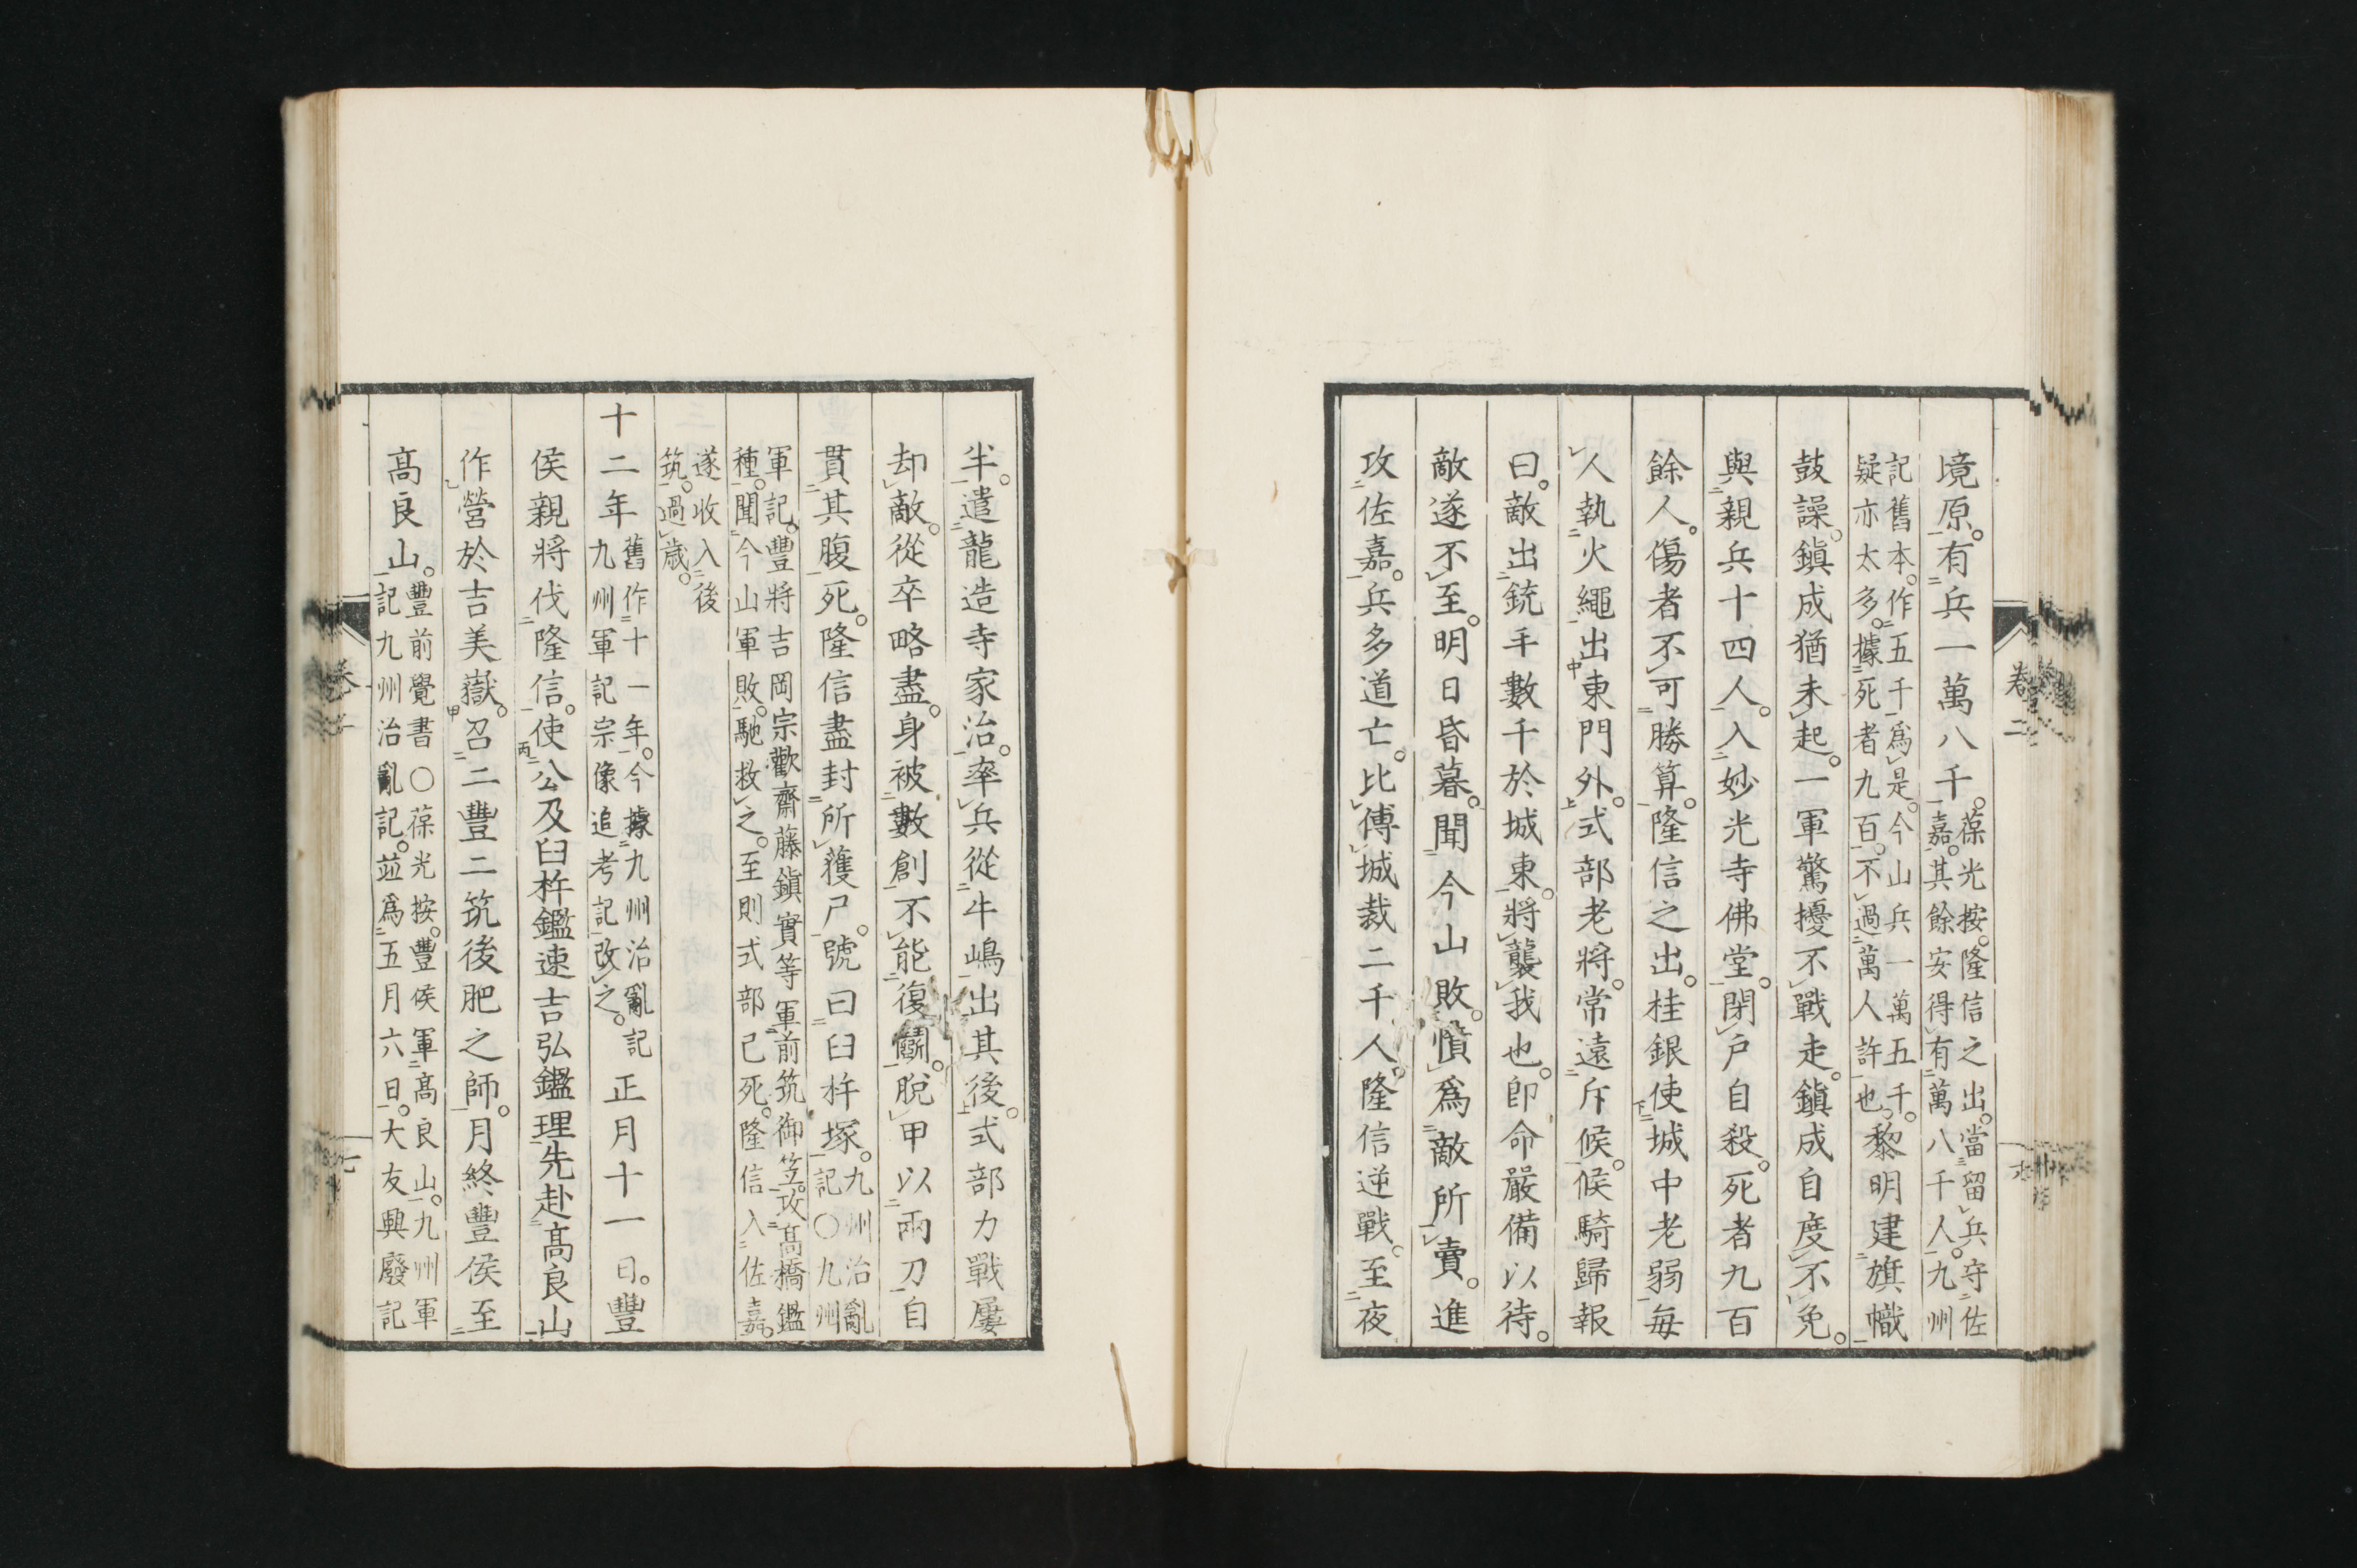 境原。有兵一萬八千。葆光按。隆信之出。當留兵守佐
嘉。其餘安得有萬八千人。九州
記舊本。作五千爲是。今山兵一萬五千。
疑亦太多。據死者九百。不過萬人許也。黎明建旗幟
鼓譟。鎭成猶未起。一軍驚擾不戰走。鎭成自度不免。
與親兵十四人。入妙光寺佛堂。閉戶自殺。死者九百
餘人。傷者不可勝算。隆信之出。桂銀使城中老弱每
人執火繩出東門外。式部老將。常遠斥候。候騎歸報
曰。敵出銃手數千於城東。將襲我也。卽命嚴備以待。
敵遂不至。明日昏暮。聞今山敗。憤爲敵所賣。進
攻佐嘉。兵多道亡。比傅城裁二千人。隆信逆戰。至夜
卷二
半。遣龍造寺家治。率兵從牛嶋出其後。式部力戰屢
却敵。從卒略盡。身被數創不能復鬭。脫甲以兩刀自
貫其腹死。隆信盡封所獲尸。號曰臼杵塚。九州治亂
記〇九州
軍記。豐將吉岡宗歡齋藤鎭實等軍前筑御笠。攻高橋鑑
種。聞今山軍敗。馳救之。至則式部已死。隆信入佐嘉。
遂收入後
筑。過歲。
十二年舊作十一年。今據九州治亂記
九州軍記宗像追考記改之。正月十一日。豐
侯親將伐隆信。使公及臼杵鑑速吉弘鑑理先赴高良山
作營於吉美嶽。召二豐二筑後肥之師。月終豐侯至
高良山。豐前覺書〇葆光按。豐侯軍高良山。九州軍
記九州治亂記。並爲五月六日。大友興廢記
卷二
七